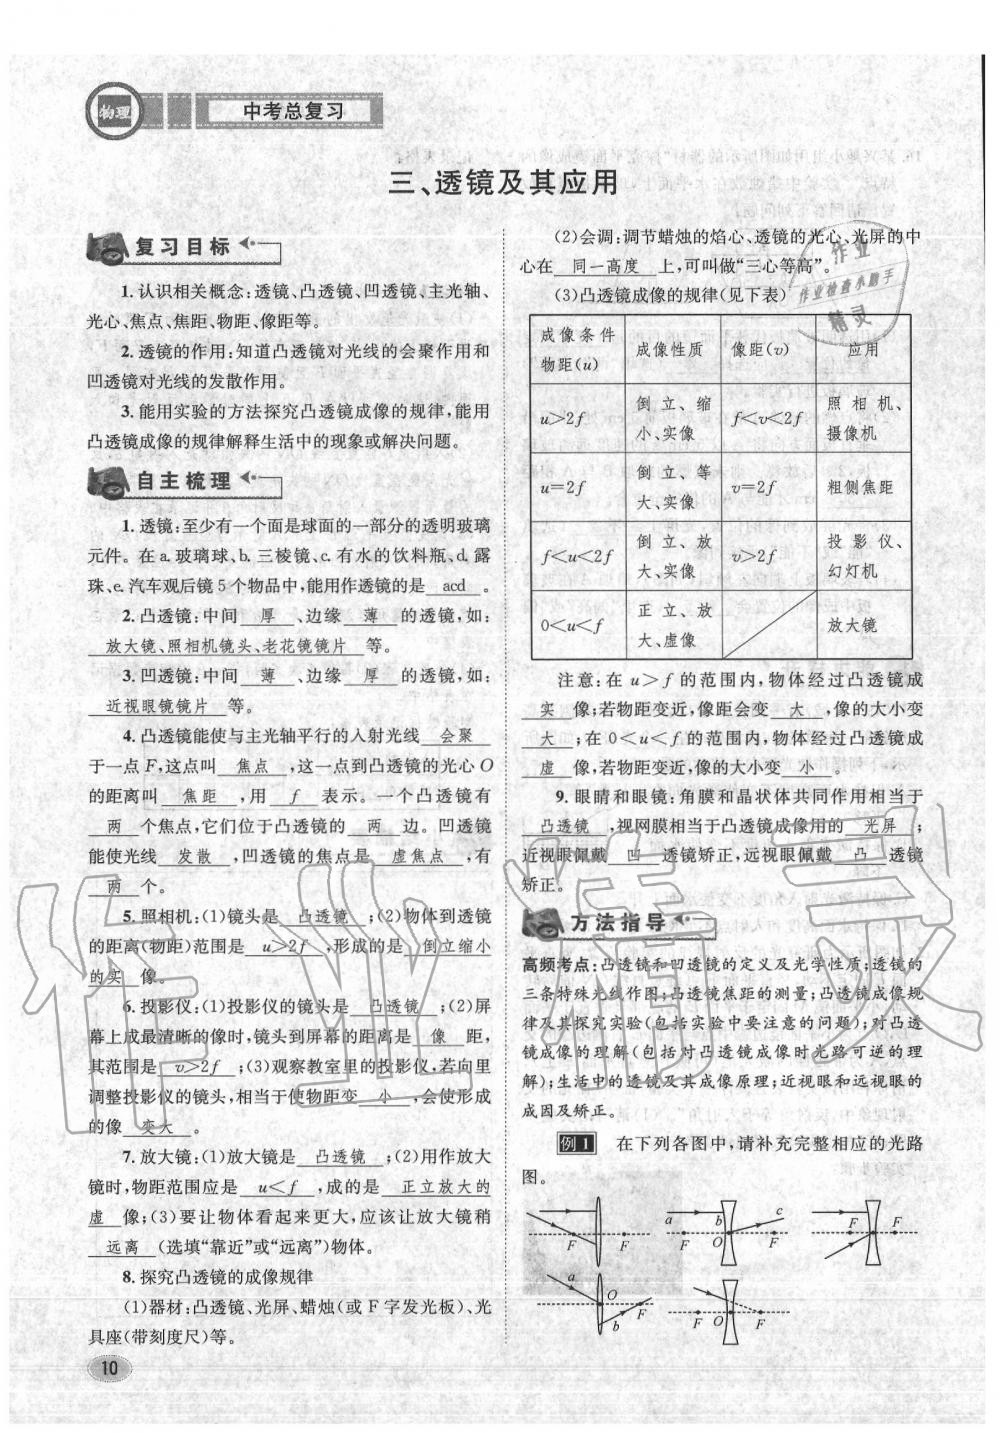 物理
中考总复习
三、透镜及其应用
复习目标
1. 认识相关概念:透镜、凸透镜、凹透镜、主光轴、
光心、焦点、焦距、物距、像距等。
2. 透镜的作用:知道凸透镜对光线的会聚作用和
凹透镜对光线的发散作用。
3. 能用实验的方法探究凸透镜成像的规律,能用
凸透镜成像的规律解释生活中的现象或解决问题。
自主梳理
1. 透镜:至少有一个面是球面的一部分的透明玻璃
元件。在a. 玻璃球、b. 三棱镜、c. 有水的饮料瓶、d. 露
珠、e. 汽车观后镜5个物品中,能用作透镜的是 acd 。
2. 凸透镜:中间 厚 、边缘 薄 的透镜,如:
放大镜、照相机镜头、老花镜镜片 等。
3. 凹透镜:中间 薄 、边缘 厚 的透镜,如:
近视眼镜镜片 等。
4. 凸透镜能使与主光轴平行的入射光线 会聚
于一点F,这点叫 焦点 ,这一点到凸透镜的光心O
的距离叫 焦距 ,用 f 表示。一个凸透镜有
两 个焦点,它们位于凸透镜的 两 边。凹透镜
能使光线 发散 ,凹透镜的焦点是 虚焦点 ,有
两 个。
5. 照相机:(1)镜头是 凸透镜 ;(2)物体到透镜
的距离(物距)范围是 u>2f ,形成的是 倒立缩小
的实 像。
6. 投影仪:(1)投影仪的镜头是 凸透镜 ;(2)屏
幕上成最清晰的像时,镜头到屏幕的距离是 像 距,
其范围是 v>2f ;(3)观察教室里的投影仪,若向里
调整投影仪的镜头,相当于使物距变 小 ,会使形成
的像 变大 。
7. 放大镜:(1)放大镜是 凸透镜 ;(2)用作放大
镜时,物距范围应是 u<f ,成的是 正立放大的
虚 像;(3)要让物体看起来更大,应该让放大镜稍
远离 (选填“靠近”或“远离”)物体。
8. 探究凸透镜的成像规律
(1)器材:凸透镜、光屏、蜡烛(或F字发光板)、光
具座(带刻度尺)等。
10
(2)会调:调节蜡烛的焰心、透镜的光心、光屏的中
心在 同一高度 上,可叫做“三心等高”。
(3)凸透镜成像的规律(见下表)
成像条件 成像性质 像距(v) 应用
物距(u)
u>2f 倒立、缩 f<v<2f 照相机、
小、实像 摄像机
u=2f 倒立、等 v=2f 粗侧焦距
大、实像
f<u<2f 倒立、放 v>2f 投影仪、
大、实像 幻灯机
0<u<f 正立、放 放大镜
大、虚像
注意:在u>f的范围内,物体经过凸透镜成
实 像;若物距变近,像距会变 大 ,像的大小变
大 ;在0<u<f的范围内,物体经过凸透镜成
虚 像,若物距变近,像的大小变 小 。
9. 眼睛和眼镜:角膜和晶状体共同作用相当于
凸透镜 ,视网膜相当于凸透镜成像用的 光屏 ;
近视眼佩戴 凹 透镜矫正,远视眼佩戴 凸 透镜
矫正。
方法指导
高频考点:凸透镜和凹透镜的定义及光学性质;透镜的
三条特殊光线作图;凸透镜焦距的测量;凸透镜成像规
律及其探究实验(包括实验中要注意的问题);对凸透
镜成像的理解(包括对凸透镜成像时光路可逆的理
解);生活中的透镜及其成像原理;近视眼和远视眼的
成因及矫正。
例1 在下列各图中,请补充完整相应的光路
图。
F F a b c F O F F F
a O F b F O F
作业
作业检查小助手
精灵
作业精灵